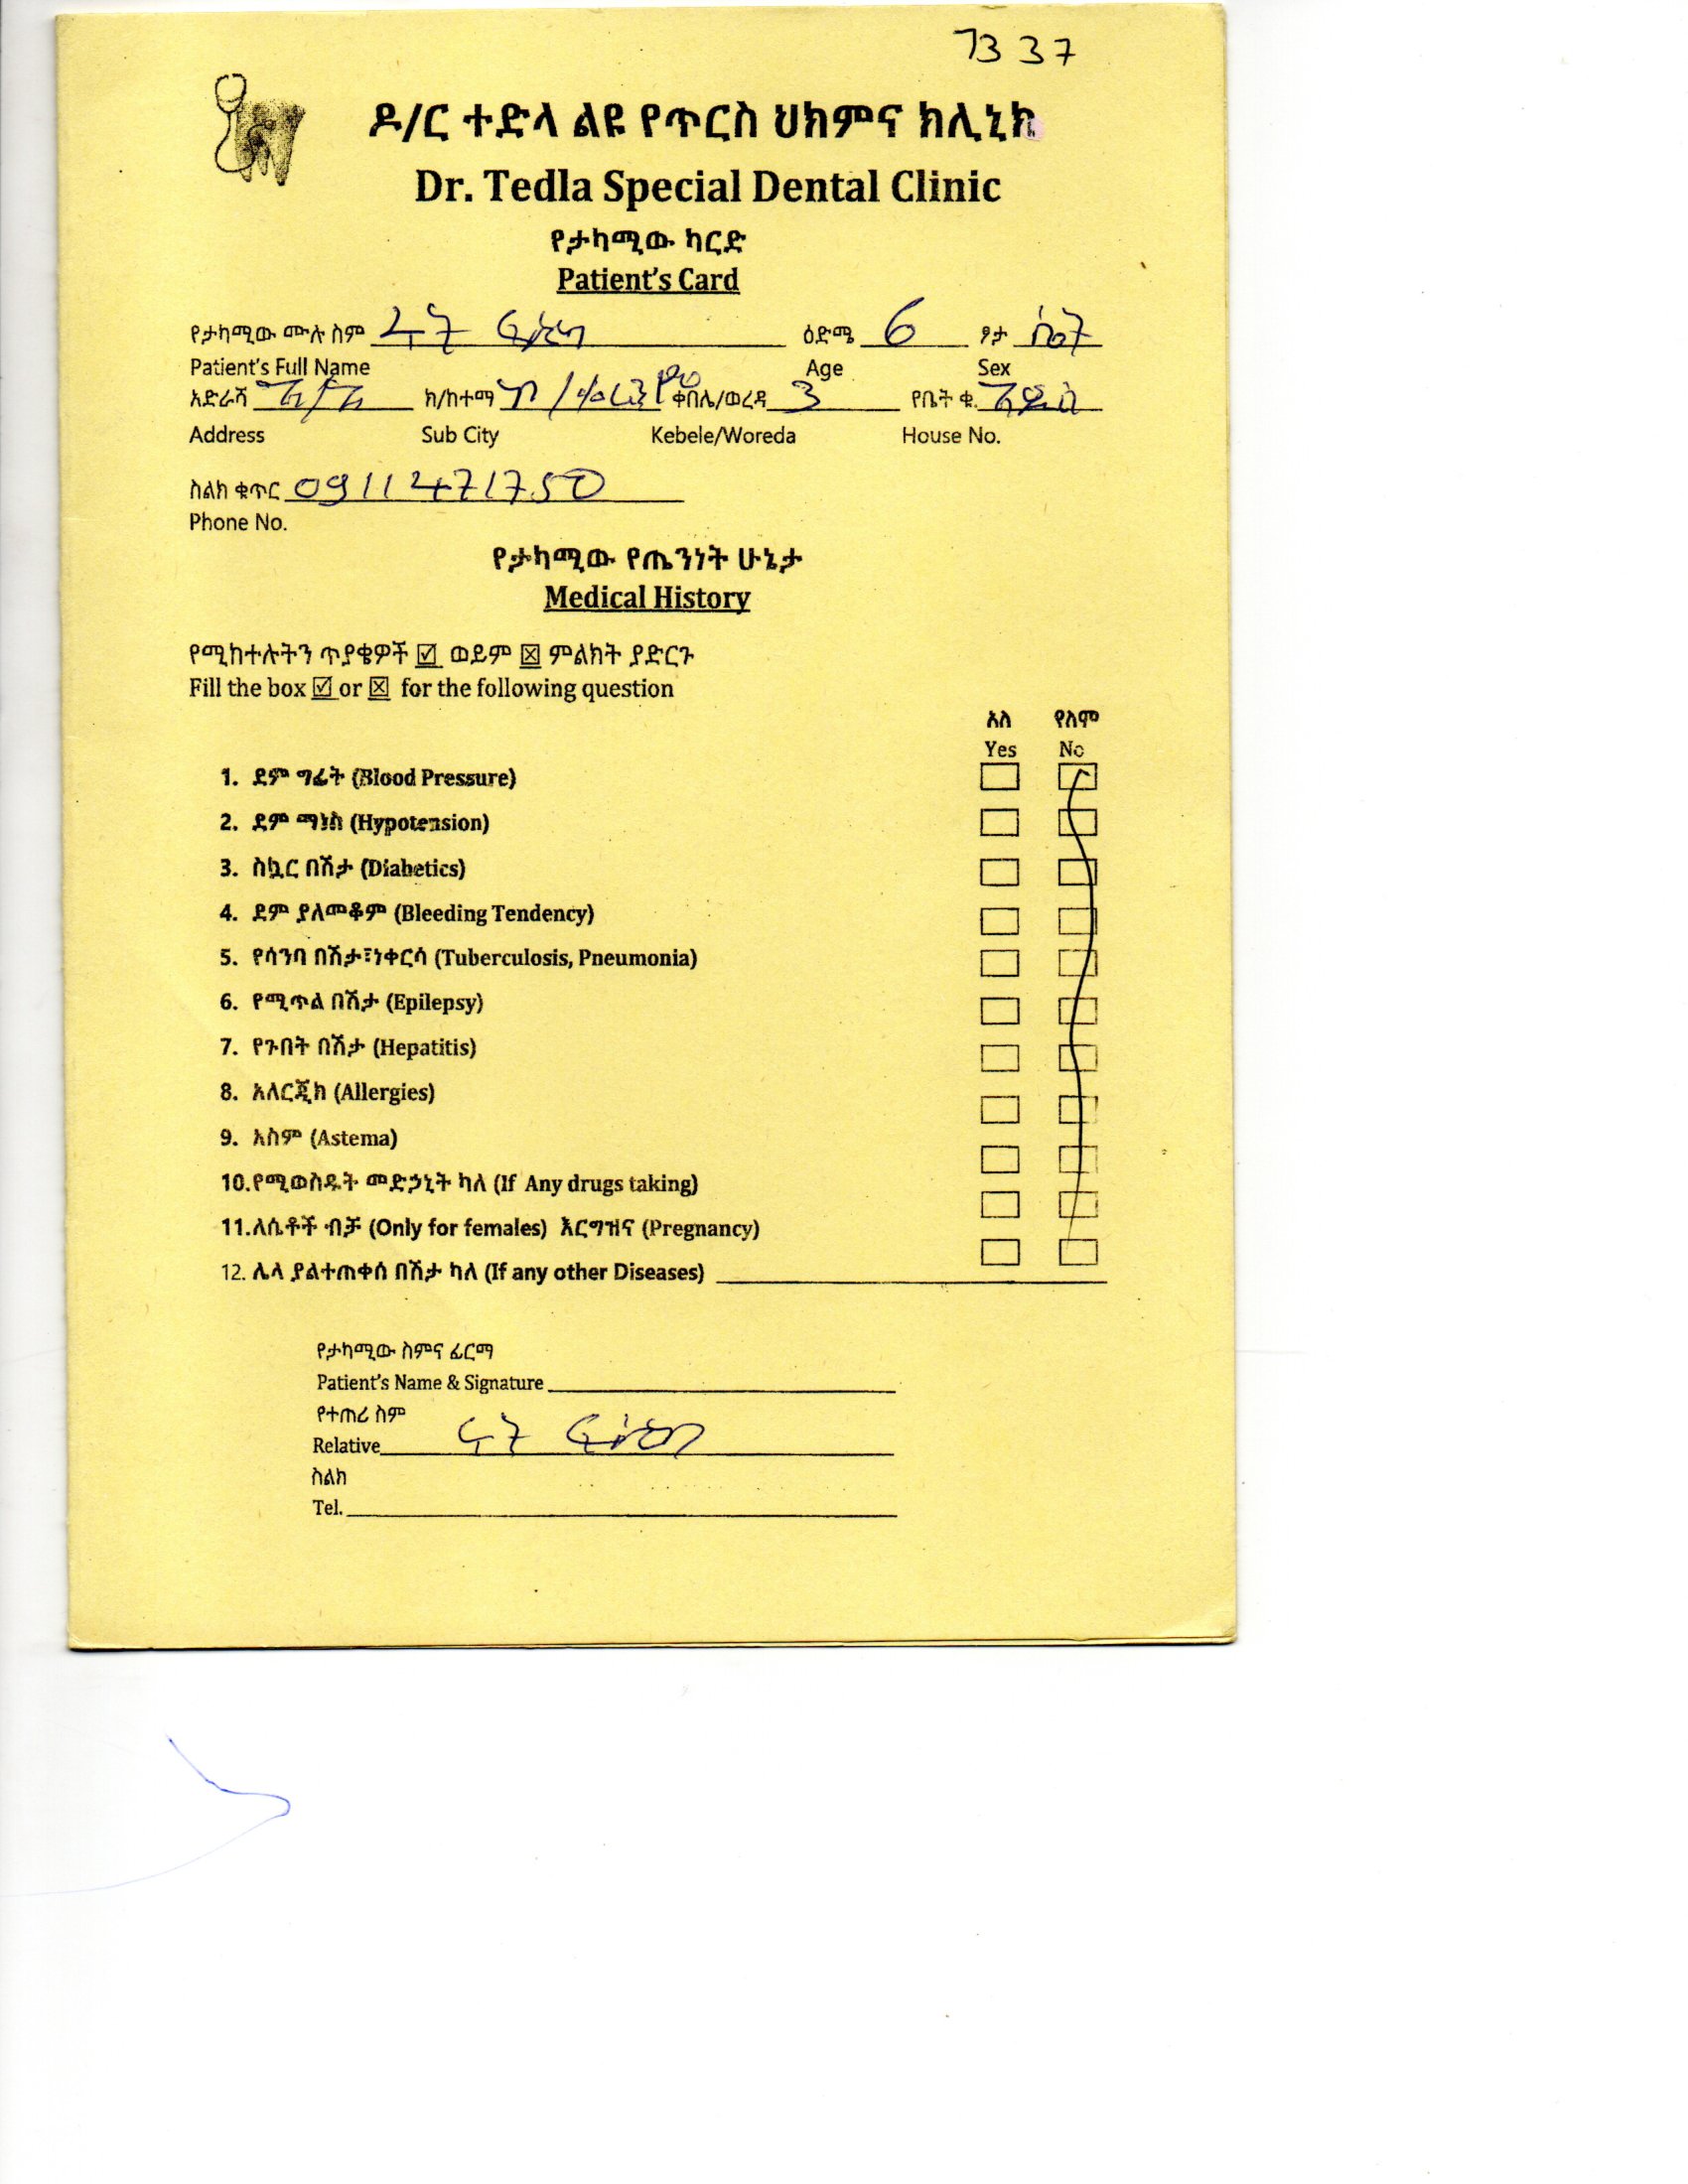 7337
ዶ/ር ተድላ ልዩ የጥርስ ህክምና ክሊኒክ
Dr. Tedla Special Dental Clinic
የታካሚው ካርድ
Patient's Card
የታካሚው ሙሉ ስም ዕድሜ 6 ፆታ ሴት
Patient's Full Name Age Sex
አድራሻ አ/አ ክ/ከተማ ቀበሌ/ወረዳ 3 የቤት ቁ. አዲስ
Address Sub City Kebele/Woreda House No.
ስልክ ቁጥር 0911471750
Phone No.
የታካሚው የጤንነት ሁኔታ
Medical History
የሚከተሉትን ጥያቄዎች ☑ ወይም ☒ ምልክት ያድርጉ
Fill the box ☑ or ☒ for the following question
አለ የለም
Yes No
1. ደም ግፊት (Blood Pressure)
2. ደም ማነስ (Hypotension)
3. ስኳር በሽታ (Diabetics)
4. ደም ያለመቆም (Bleeding Tendency)
5. የሳንባ በሽታ፣ነቀርሳ (Tuberculosis, Pneumonia)
6. የሚጥል በሽታ (Epilepsy)
7. የጉበት በሽታ (Hepatitis)
8. አለርጂክ (Allergies)
9. አስም (Astema)
10.የሚወስዱት መድኃኒት ካለ (If Any drugs taking)
11.ለሴቶች ብቻ (Only for females) እርግዝና (Pregnancy)
12. ሌላ ያልተጠቀሰ በሽታ ካለ (If any other Diseases)
የታካሚው ስምና ፊርማ
Patient's Name & Signature
የተጠሪ ስም
Relative
ስልክ
Tel.